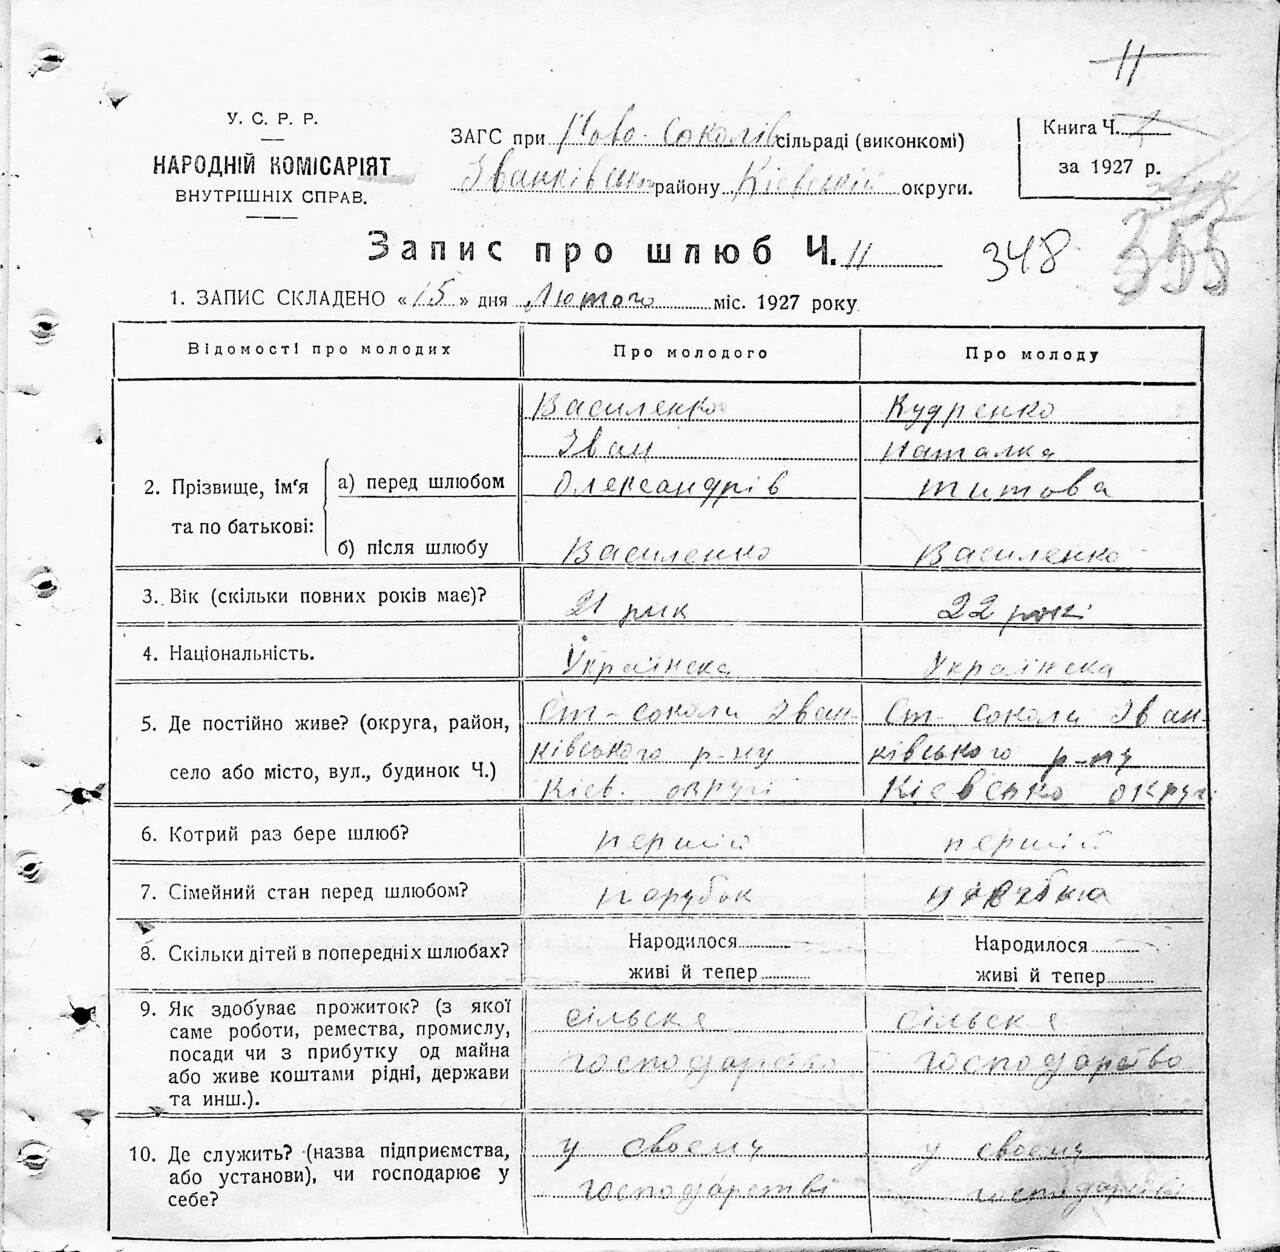 11
У. С. Р. Р.
НАРОДНІЙ КОМІСАРІЯТ
ВНУТРІШНІХ СПРАВ.
ЗАГС при Ново-Соколів сільраді (виконкомі)
Іванківськ району Київській округи.
Книга Ч.
за 1927 р.
355
Запис про шлюб Ч. 11
348
1. ЗАПИС СКЛАДЕНО «15» дня Лютого міс. 1927 року
Відомості про молодих
Про молодого
Про молоду
2. Прізвище, ім'я та по батькові:
а) перед шлюбом
Василенко
Іван
Олександрів
Кудренко
Наталка
Титова
б) після шлюбу
Василенко
Василенко
3. Вік (скільки повних років має)?
21 рик
22 рокі
4. Національність.
Українска
Українска
5. Де постійно живе? (округа, район,
село або місто, вул., будинок Ч.)
Ст-соколи Іван-
ківського р-ну
Кіев. округі
Ст-соколи Іван-
ківського р-ну
Кієвсько округ
6. Котрий раз бере шлюб?
першій
першій
7. Сімейний стан перед шлюбом?
парубок
8. Скільки дітей в попередніх шлюбах?
Народилося
живі й тепер
Народилося
живі й тепер
9. Як здобуває прожиток? (з якої
саме роботи, ремества, промислу,
посади чи з прибутку од майна
або живе коштами рідні, держави
та инш.).
сільске
господарство
сільске
господарство
10. Де служить? (назва підприємства,
або установи), чи господарює у
себе?
у своему
господарстві
у своему
господарстві